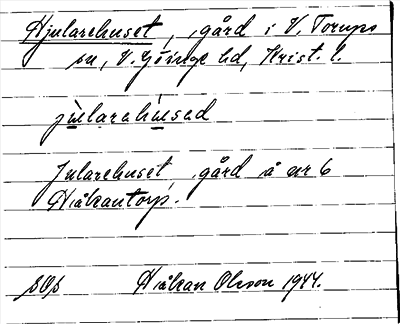 Hjularehuset, gård i V. Torups
sn, V. Göinge hd, Krist. l.
jùlarehùsed
Jularehuset gård å nr 6
Hiåkantorp.
Håkan Olsson 1944.